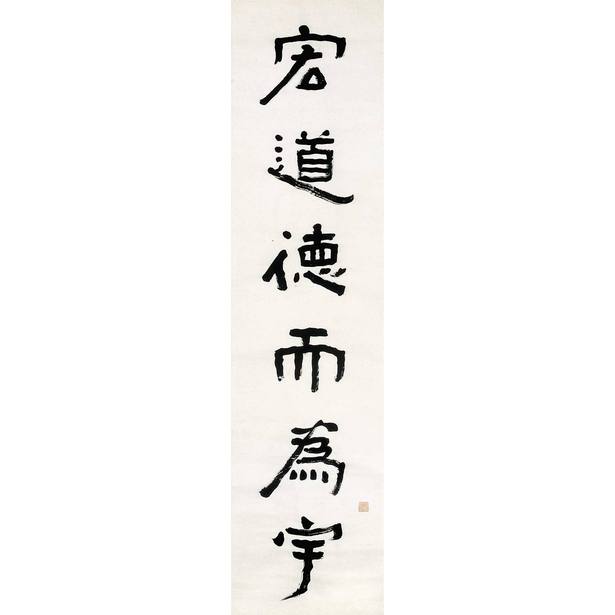 宏道德而為宇